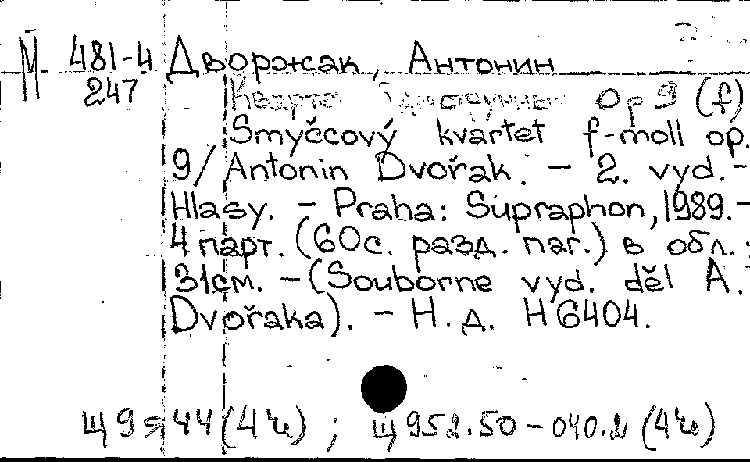 М 481-4 Дворжак, Антонин
247 Квартет Ор 9 (f)
Smyčcový kvartet f-moll op.
9/ Antonin Dvořak. - 2. vyd.-
Hlasy. - Praha: Supraphon, 1989.-
4 парт. (60с. разд. паг.) в обл.;
31см. - (Souborne vyd. děl A.
Dvořaka). - Н.д. H 6404.
Щ 9 44 (4 ч) ; Щ 952.50-040.2 (4 ч)